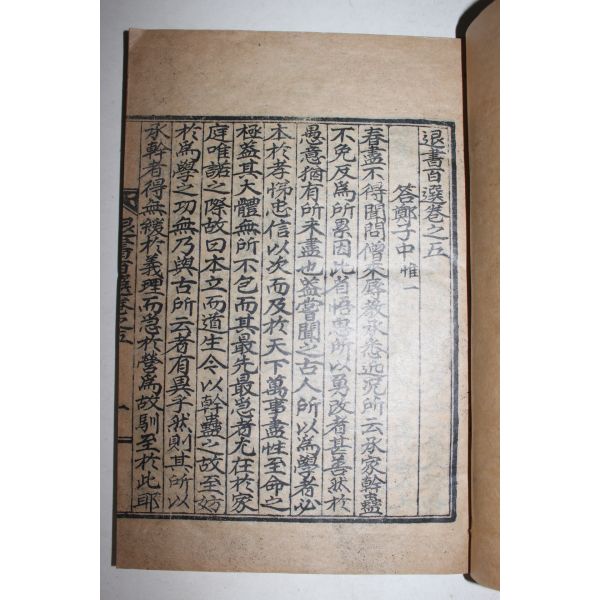 退書百選卷之五
答鄭子中 惟一
春盡不得聞問僧來辱敎承悉近況所云承家幹蠱
不免反爲所累因此省悟思所以勇改者甚善然於
愚意猶有所未盡也蓋嘗聞之古人所以爲學者必
本於孝悌忠信以次而及於天下萬事盡性至命之
極蓋其大體無所不包而其最先最急者尤在於家
庭唯諾之際故曰本立而道生今以幹蠱之故至妨
於爲學之功無乃與古所云者有異乎然則其所以
承幹者得無緩於義理而急於營爲故馴至於此耶
退書百選卷之五
一